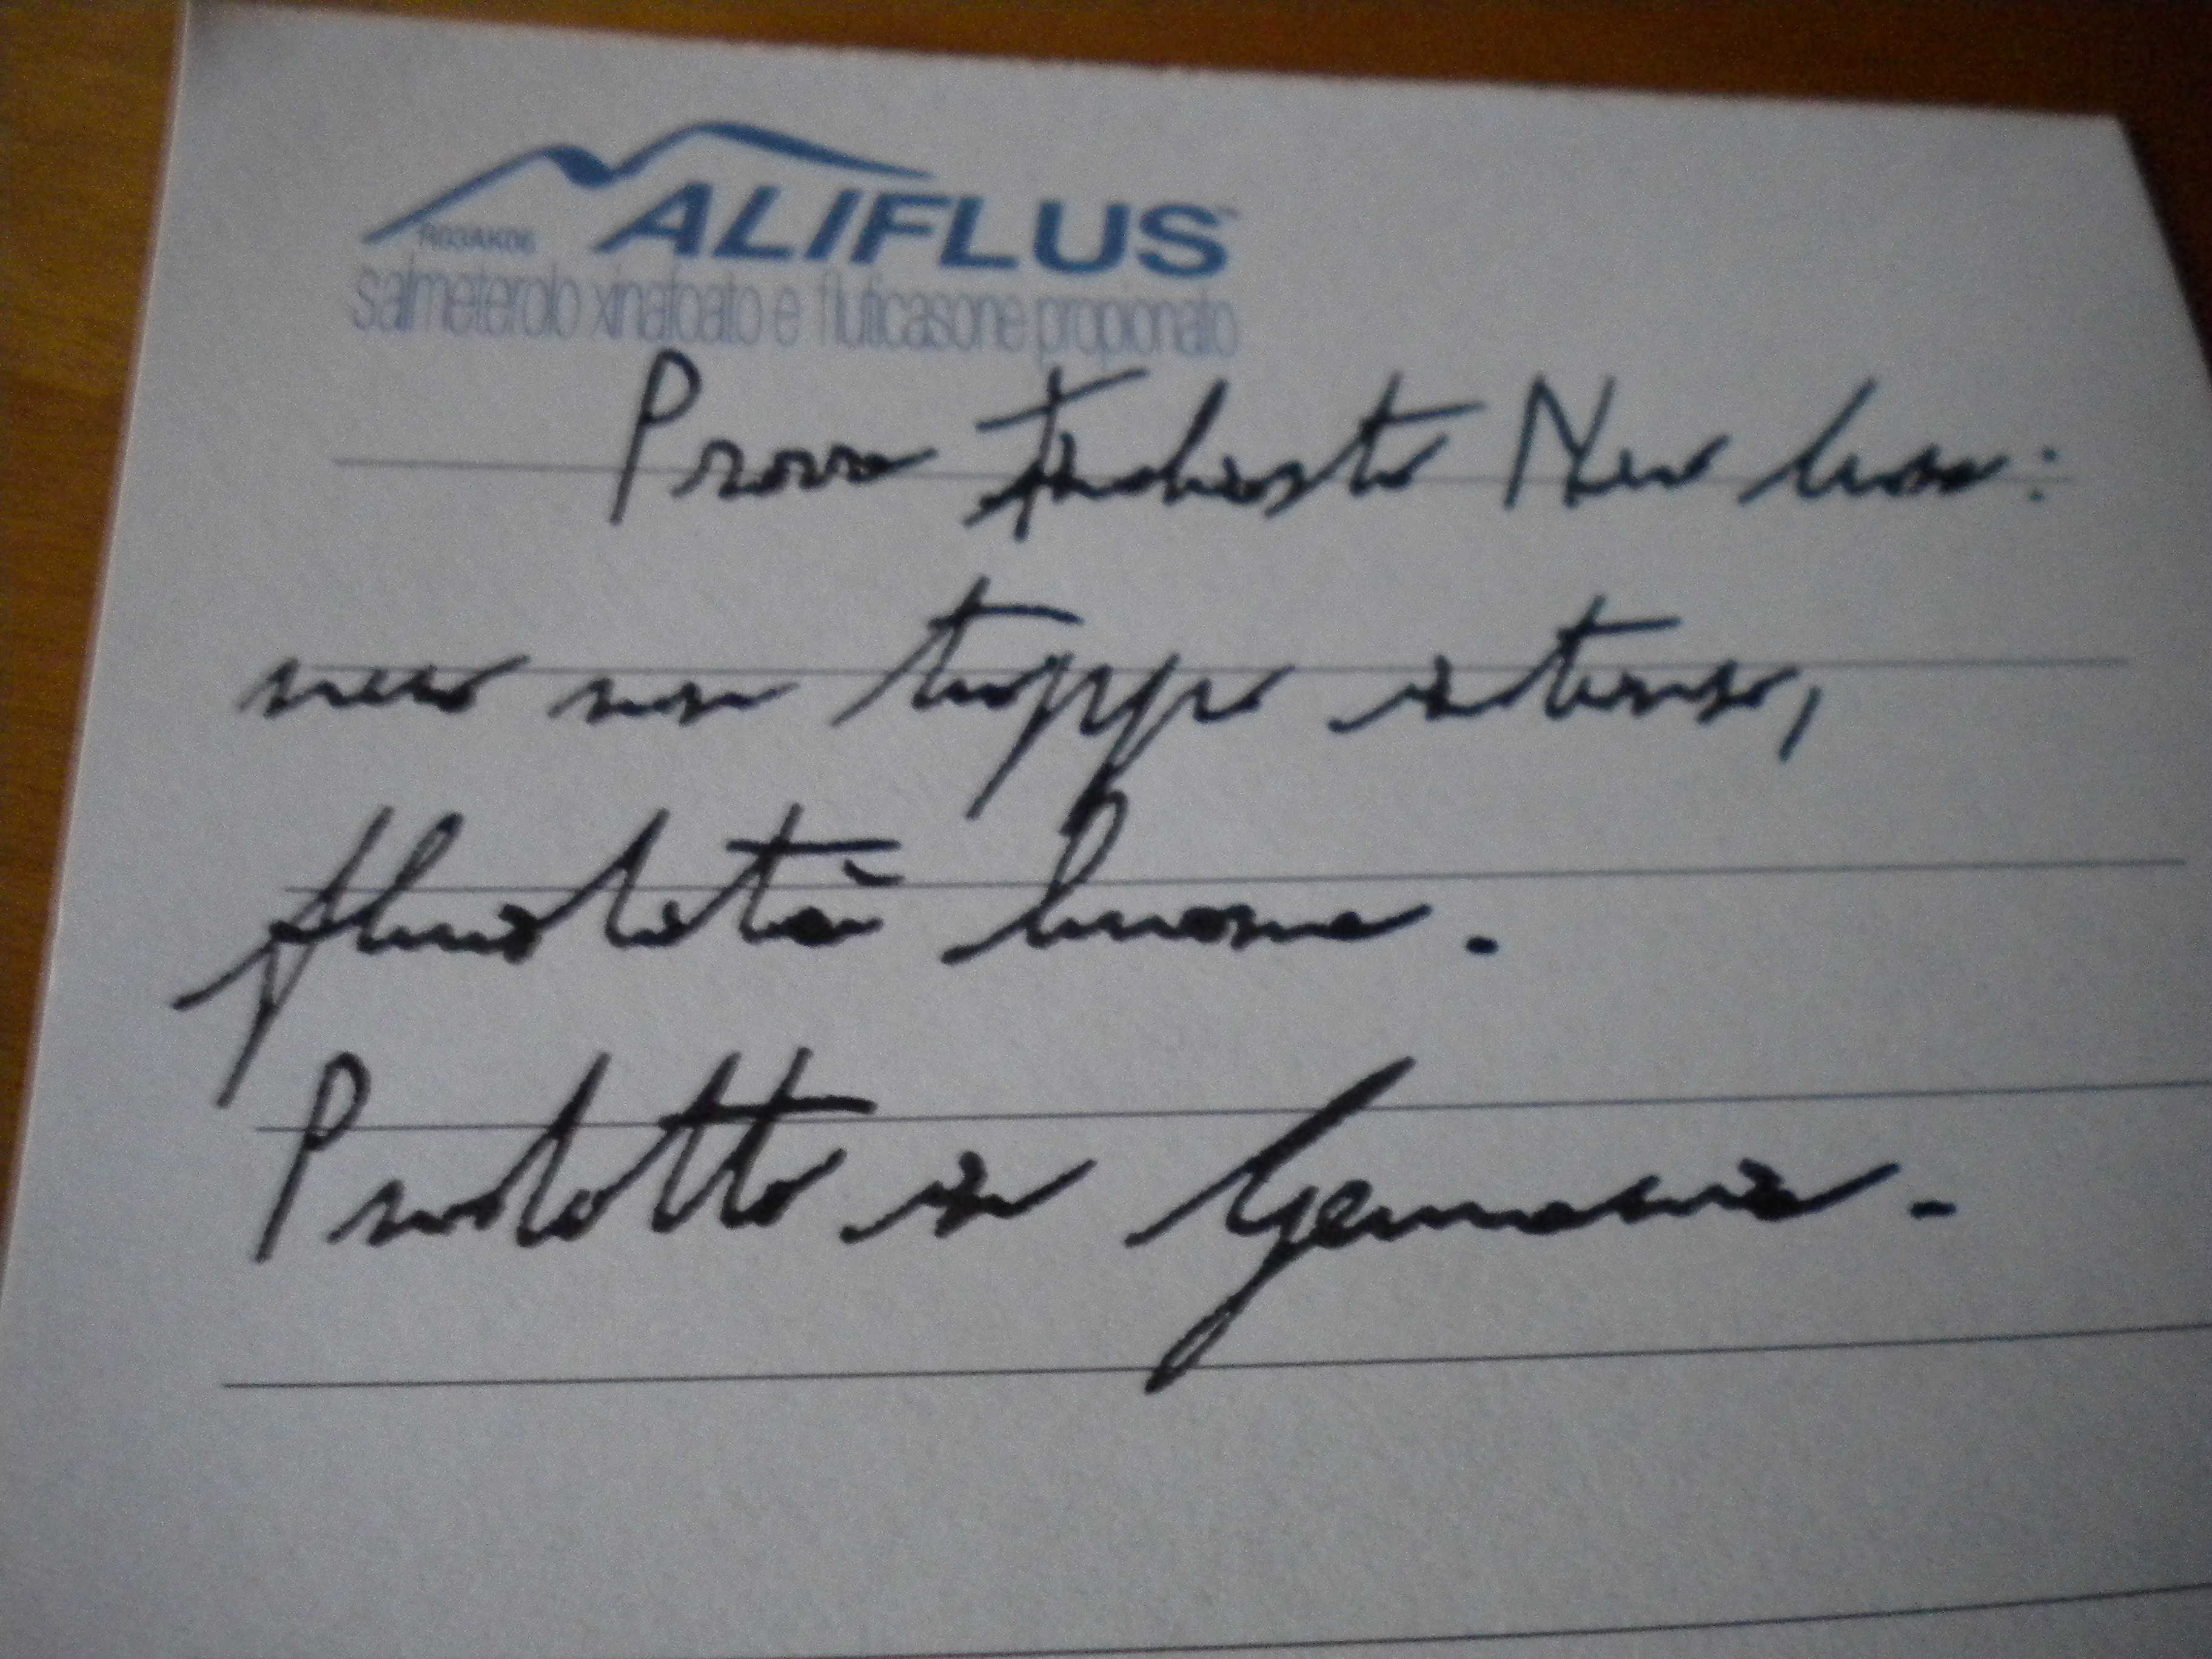 ALIFLUS™
R03AK06
salmeterolo xinafoato e fluticasone propionato
Prova Inchiostro Nero
nero non troppo intenso,
fluidità buona.
Prodotto in Germania.